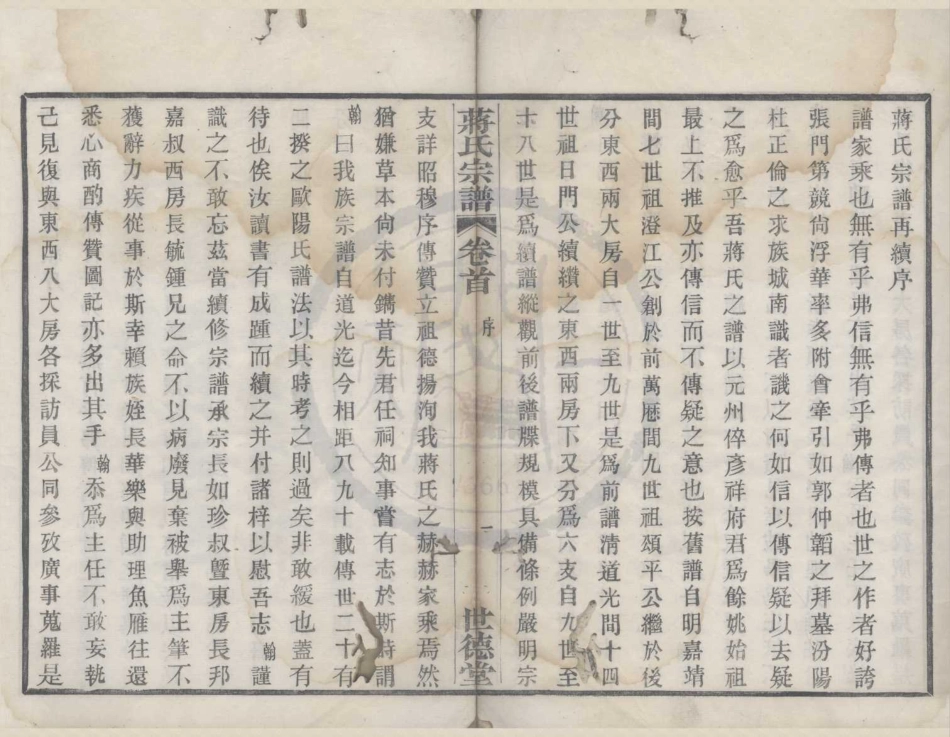 蔣氏宗譜再續序
譜家乘也無有乎弗信無有乎弗傳者也世之作者好誇
張門第競尙浮華率多附會牽引如郭仲韜之拜墓汾陽
杜正倫之求族城南識者譏之何如信以傳信疑以去疑
之爲愈乎吾蔣氏之譜以元州倅彥祥府君爲餘姚始祖
最上不推及亦傳信而不傳疑之意也按舊譜自明嘉靖
間七世祖澄江公創於前萬厯間九世祖頌平公繼於後
分東西兩大房自一世至九世是爲前譜淸道光間十四
世祖日門公續纘之東西兩房下又分爲六支自九世至
十八世是爲續譜縱觀前後譜牒規模具備條例嚴明宗
蔣氏宗譜 卷首 序 一 世德堂
支詳昭穆序傳贊立祖德揚洵我蔣氏之赫赫家乘焉然
猶嫌草本尙未付鐫昔先君任祠知事嘗有志於斯時謂
翰曰我族宗譜自道光迄今相距八九十載傳世二十有
二揆之歐陽氏譜法以其時考之則過矣非敢緩也蓋有
待也俟汝讀書有成踵而續之并付諸梓以慰吾志翰謹
識之不敢忘茲當續修宗譜承宗長如珍叔曁東房長邦
嘉叔西房長毓鍾兄之命不以病廢見棄被舉爲主筆不
獲辭力疾從事於斯幸賴族姪長華樂與助理魚雁往還
悉心商酌傳贊圖記亦多出其手翰忝爲主任不敢妄執
己見復與東西八大房各採訪員公同參攷廣事蒐羅是